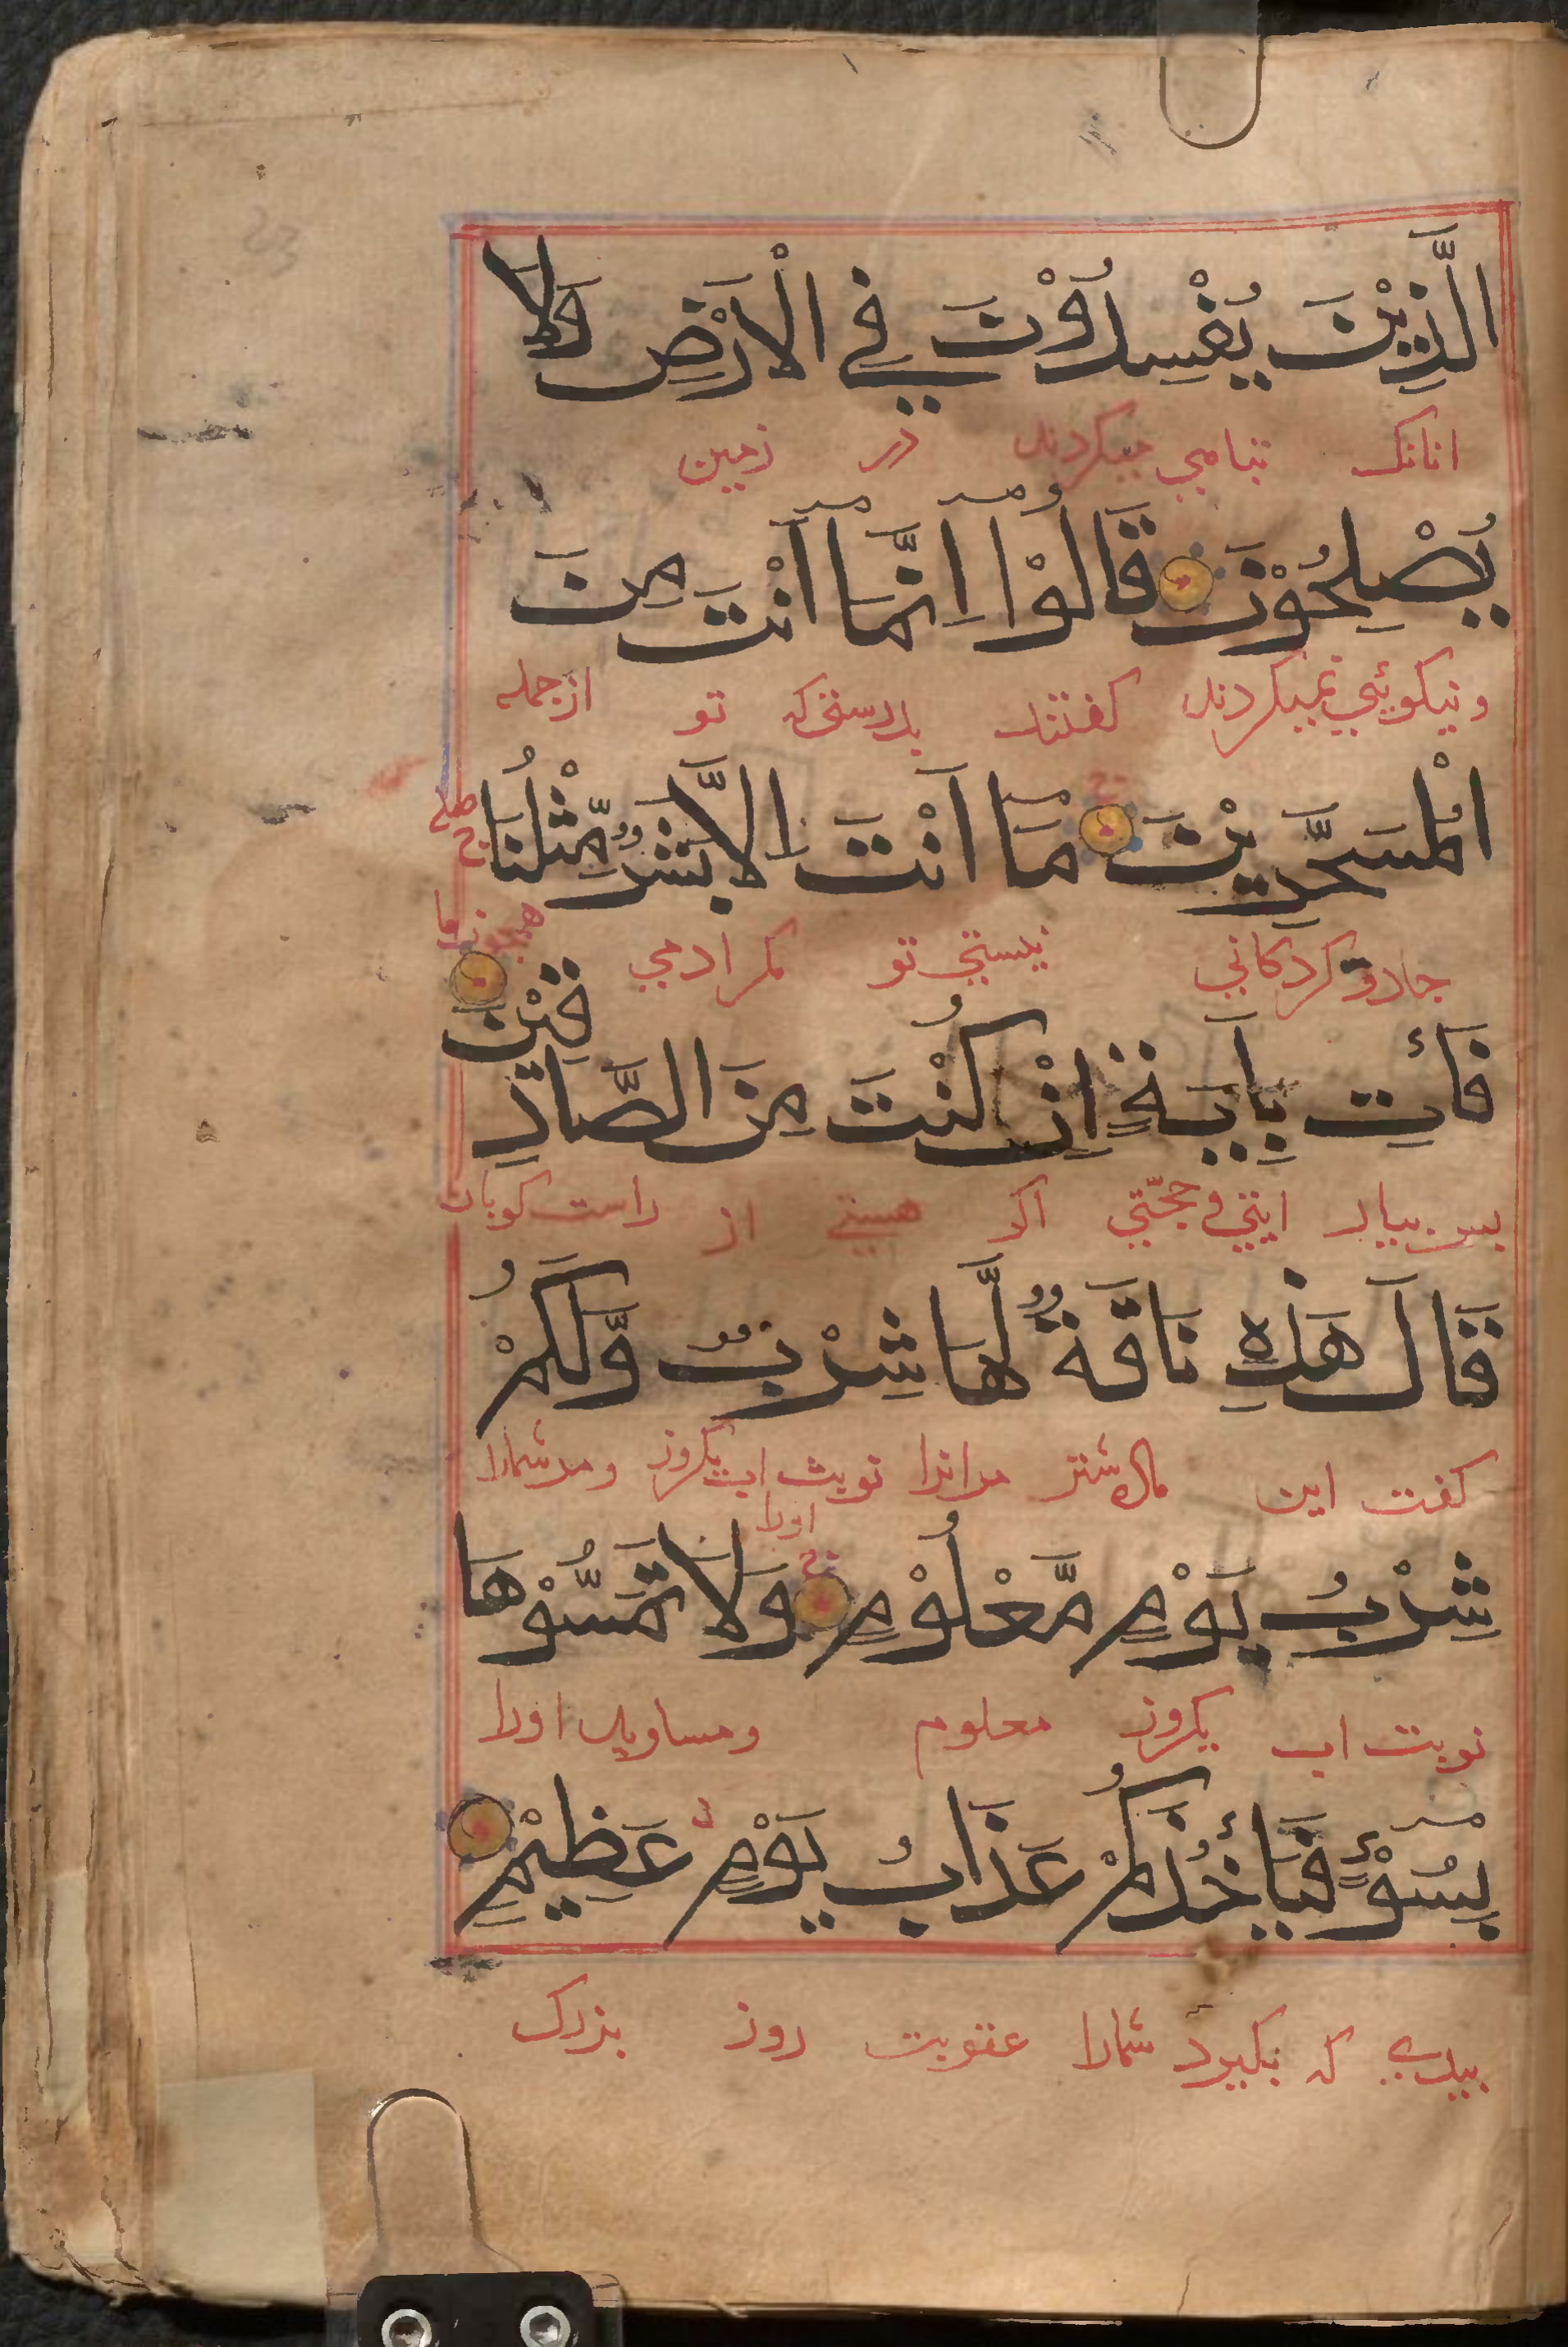 الَّذِيْنَ يُفْسِدُوْنَ فِي الْاَرْضِ وَلَا
انانک تباهي میکردند در زمین
يُصْلِحُوْنَ قَالُوْٓا اِنَّمَآ اَنْتَ مِنَ
ونیکوئي نمیکردند کفتند بدرستی که تو ازجمله
الْمُسَحَّرِيْنَ مَآ اَنْتَ اِلَّا بَشَرٌ مِّثْلُنَا
جادو کردکاني نیستي تو مکر ادمي همچو ما
فَأْتِ بِاٰيَةٍ اِنْ كُنْتَ مِنَ الصَّادِقِيْنَ
بس بیار ایتي و حجّتي اکر هستي از راست کویان
قَالَ هَذِهِ نَاقَةٌ لَّهَا شِرْبٌ وَّلَكُمْ
کفت این ماده شتر مرانرا نوبت اب یکروز ومرشمارا
اورا
شِرْبُ يَوْمٍ مَّعْلُوْمٍ وَلَا تَمَسُّوْهَا
نوبت اب یکروز معلوم ومساوید اورا
بِسُوْٓءٍ فَيَأْخُذَكُمْ عَذَابُ يَوْمٍ عَظِيْمٍ
ببدي که بکیرد شمارا عقوبت روز بزرک